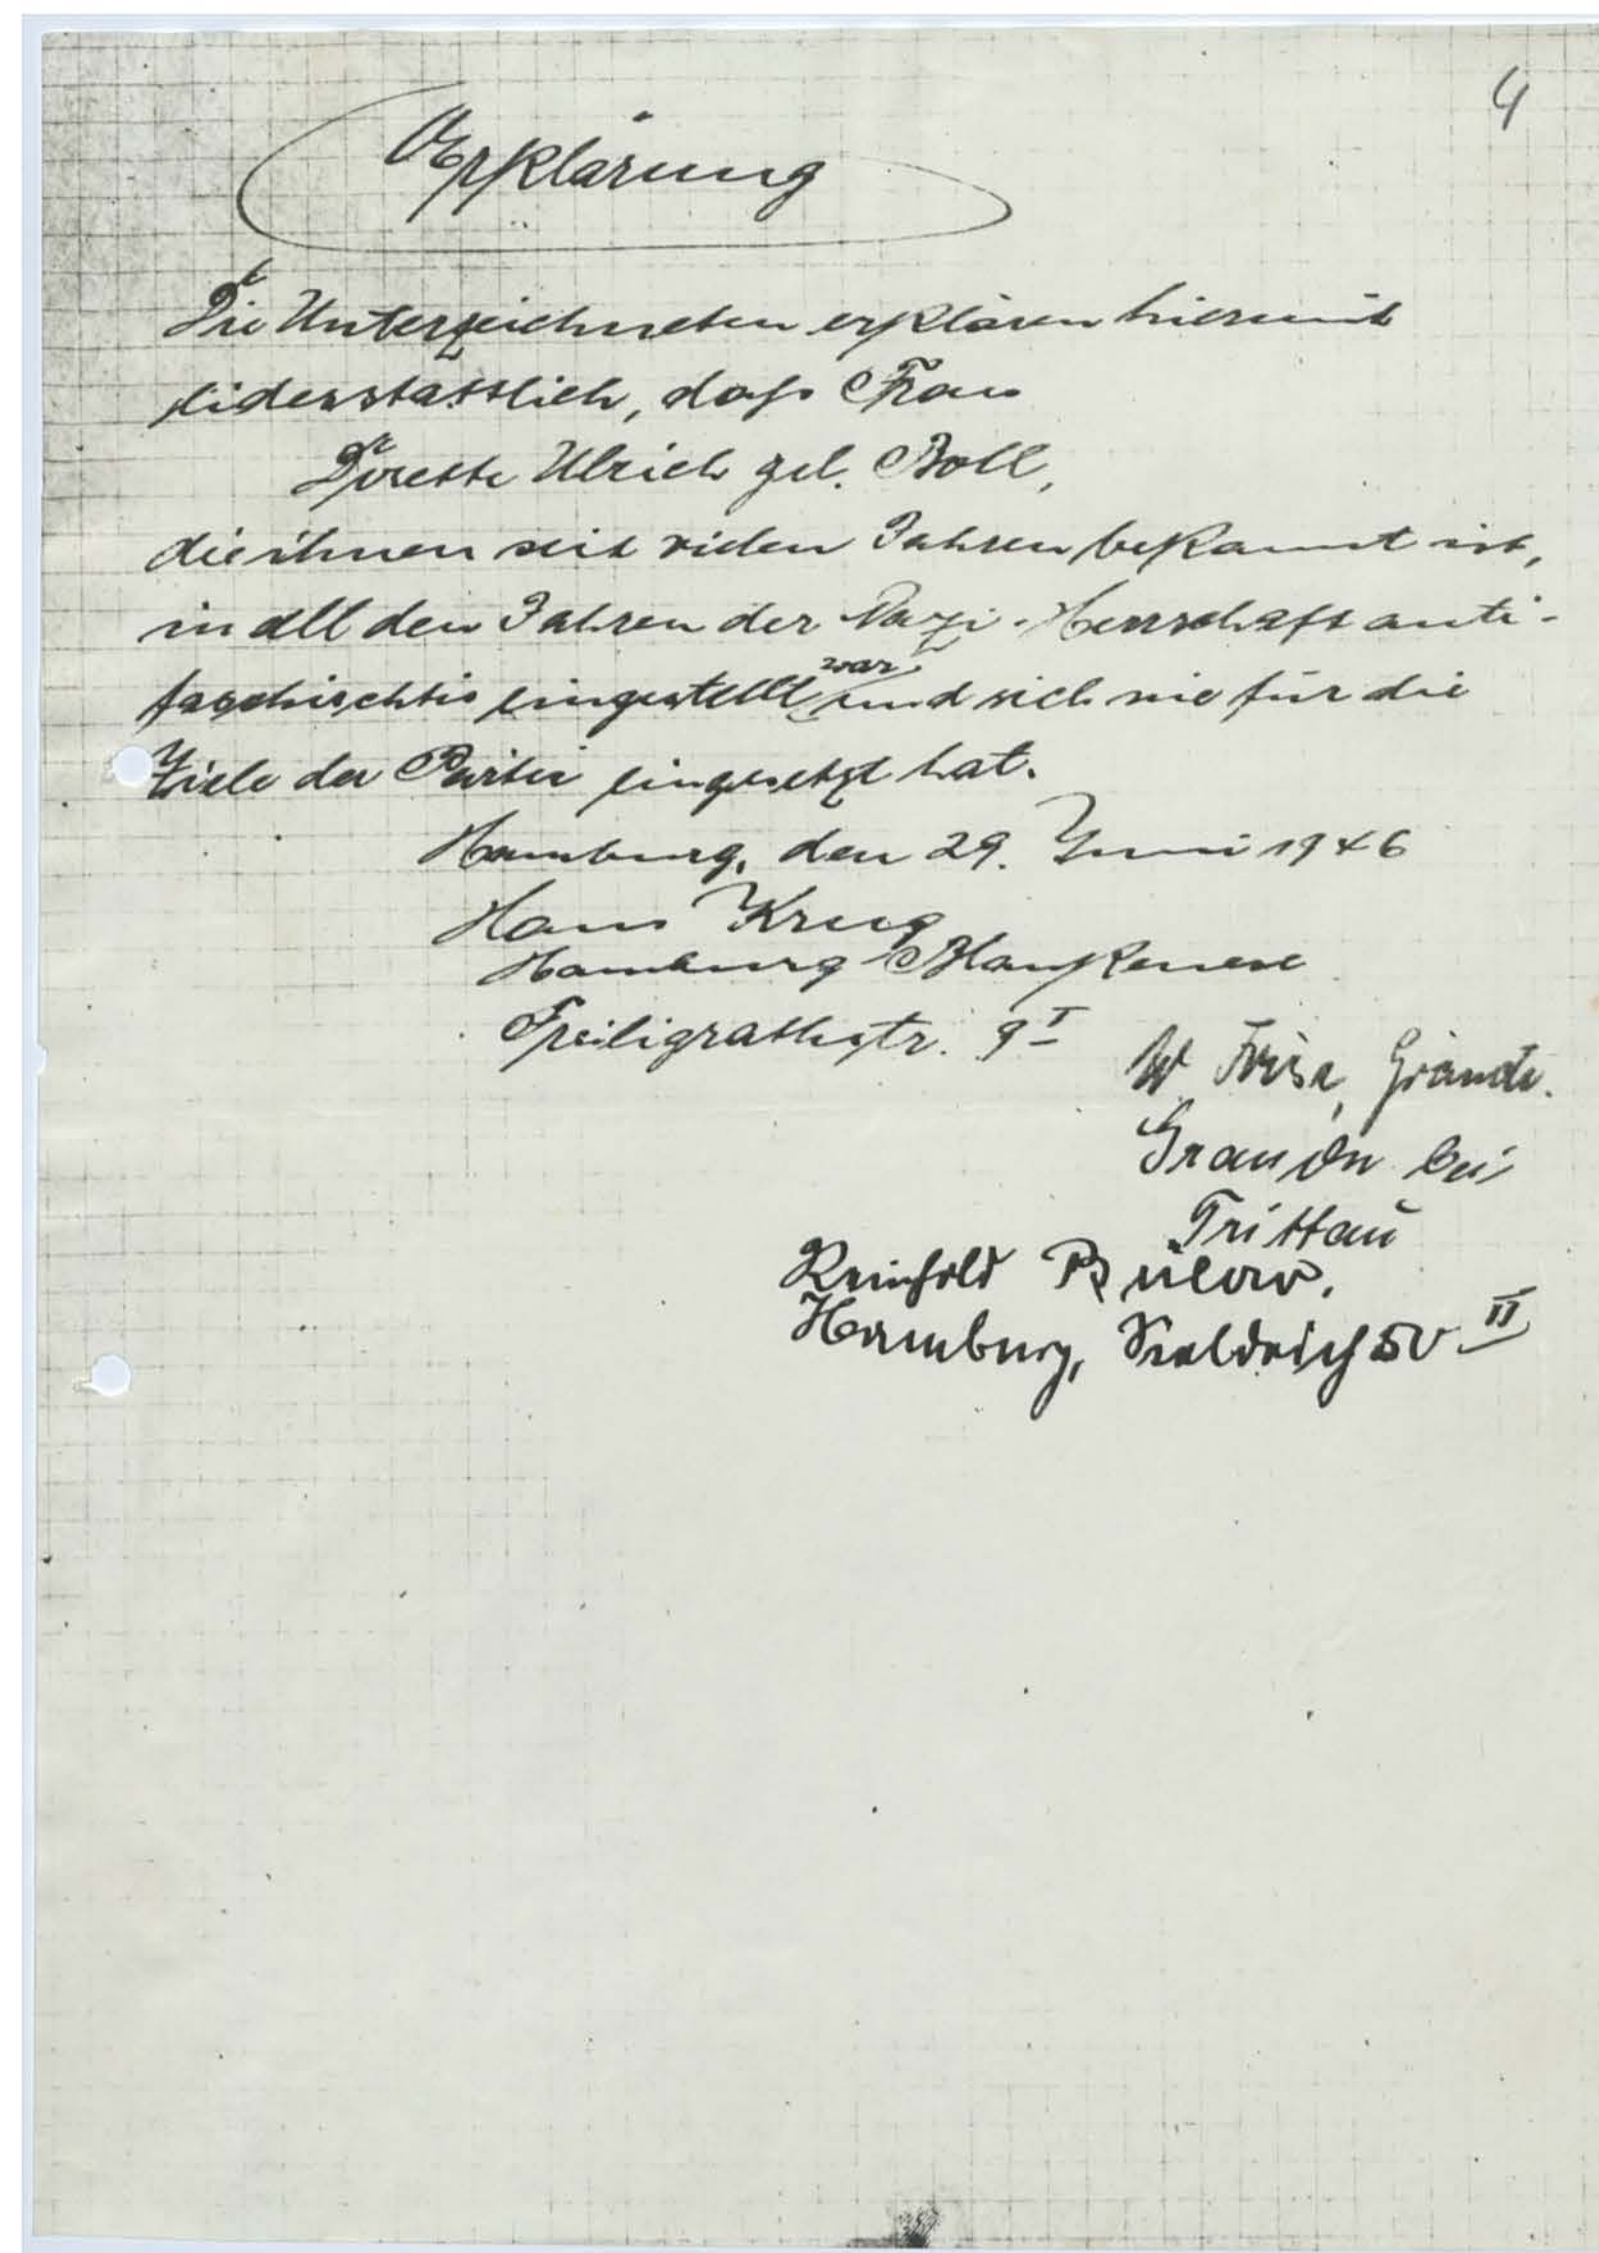 4
Erklärung
Die Unterzeichneten erklären hiermit
eidesstattlich, daß Frau
Ulrich geb. Boll,
die ihnen seit vielen Jahren bekannt ist,
in all den Jahren der Nazi-Herrschaft anti-
faschischtis eingestellt war und sich nie für die
Ziele der Partei eingesetzt hat.
Hamburg, den 29. Juni 1946
Hans Krug
Hamburg-Blankenese
Freiligrathstr. 9 I
W
Grande bei
Trittau
Reinhold Bülow.
Hamburg, 50 II